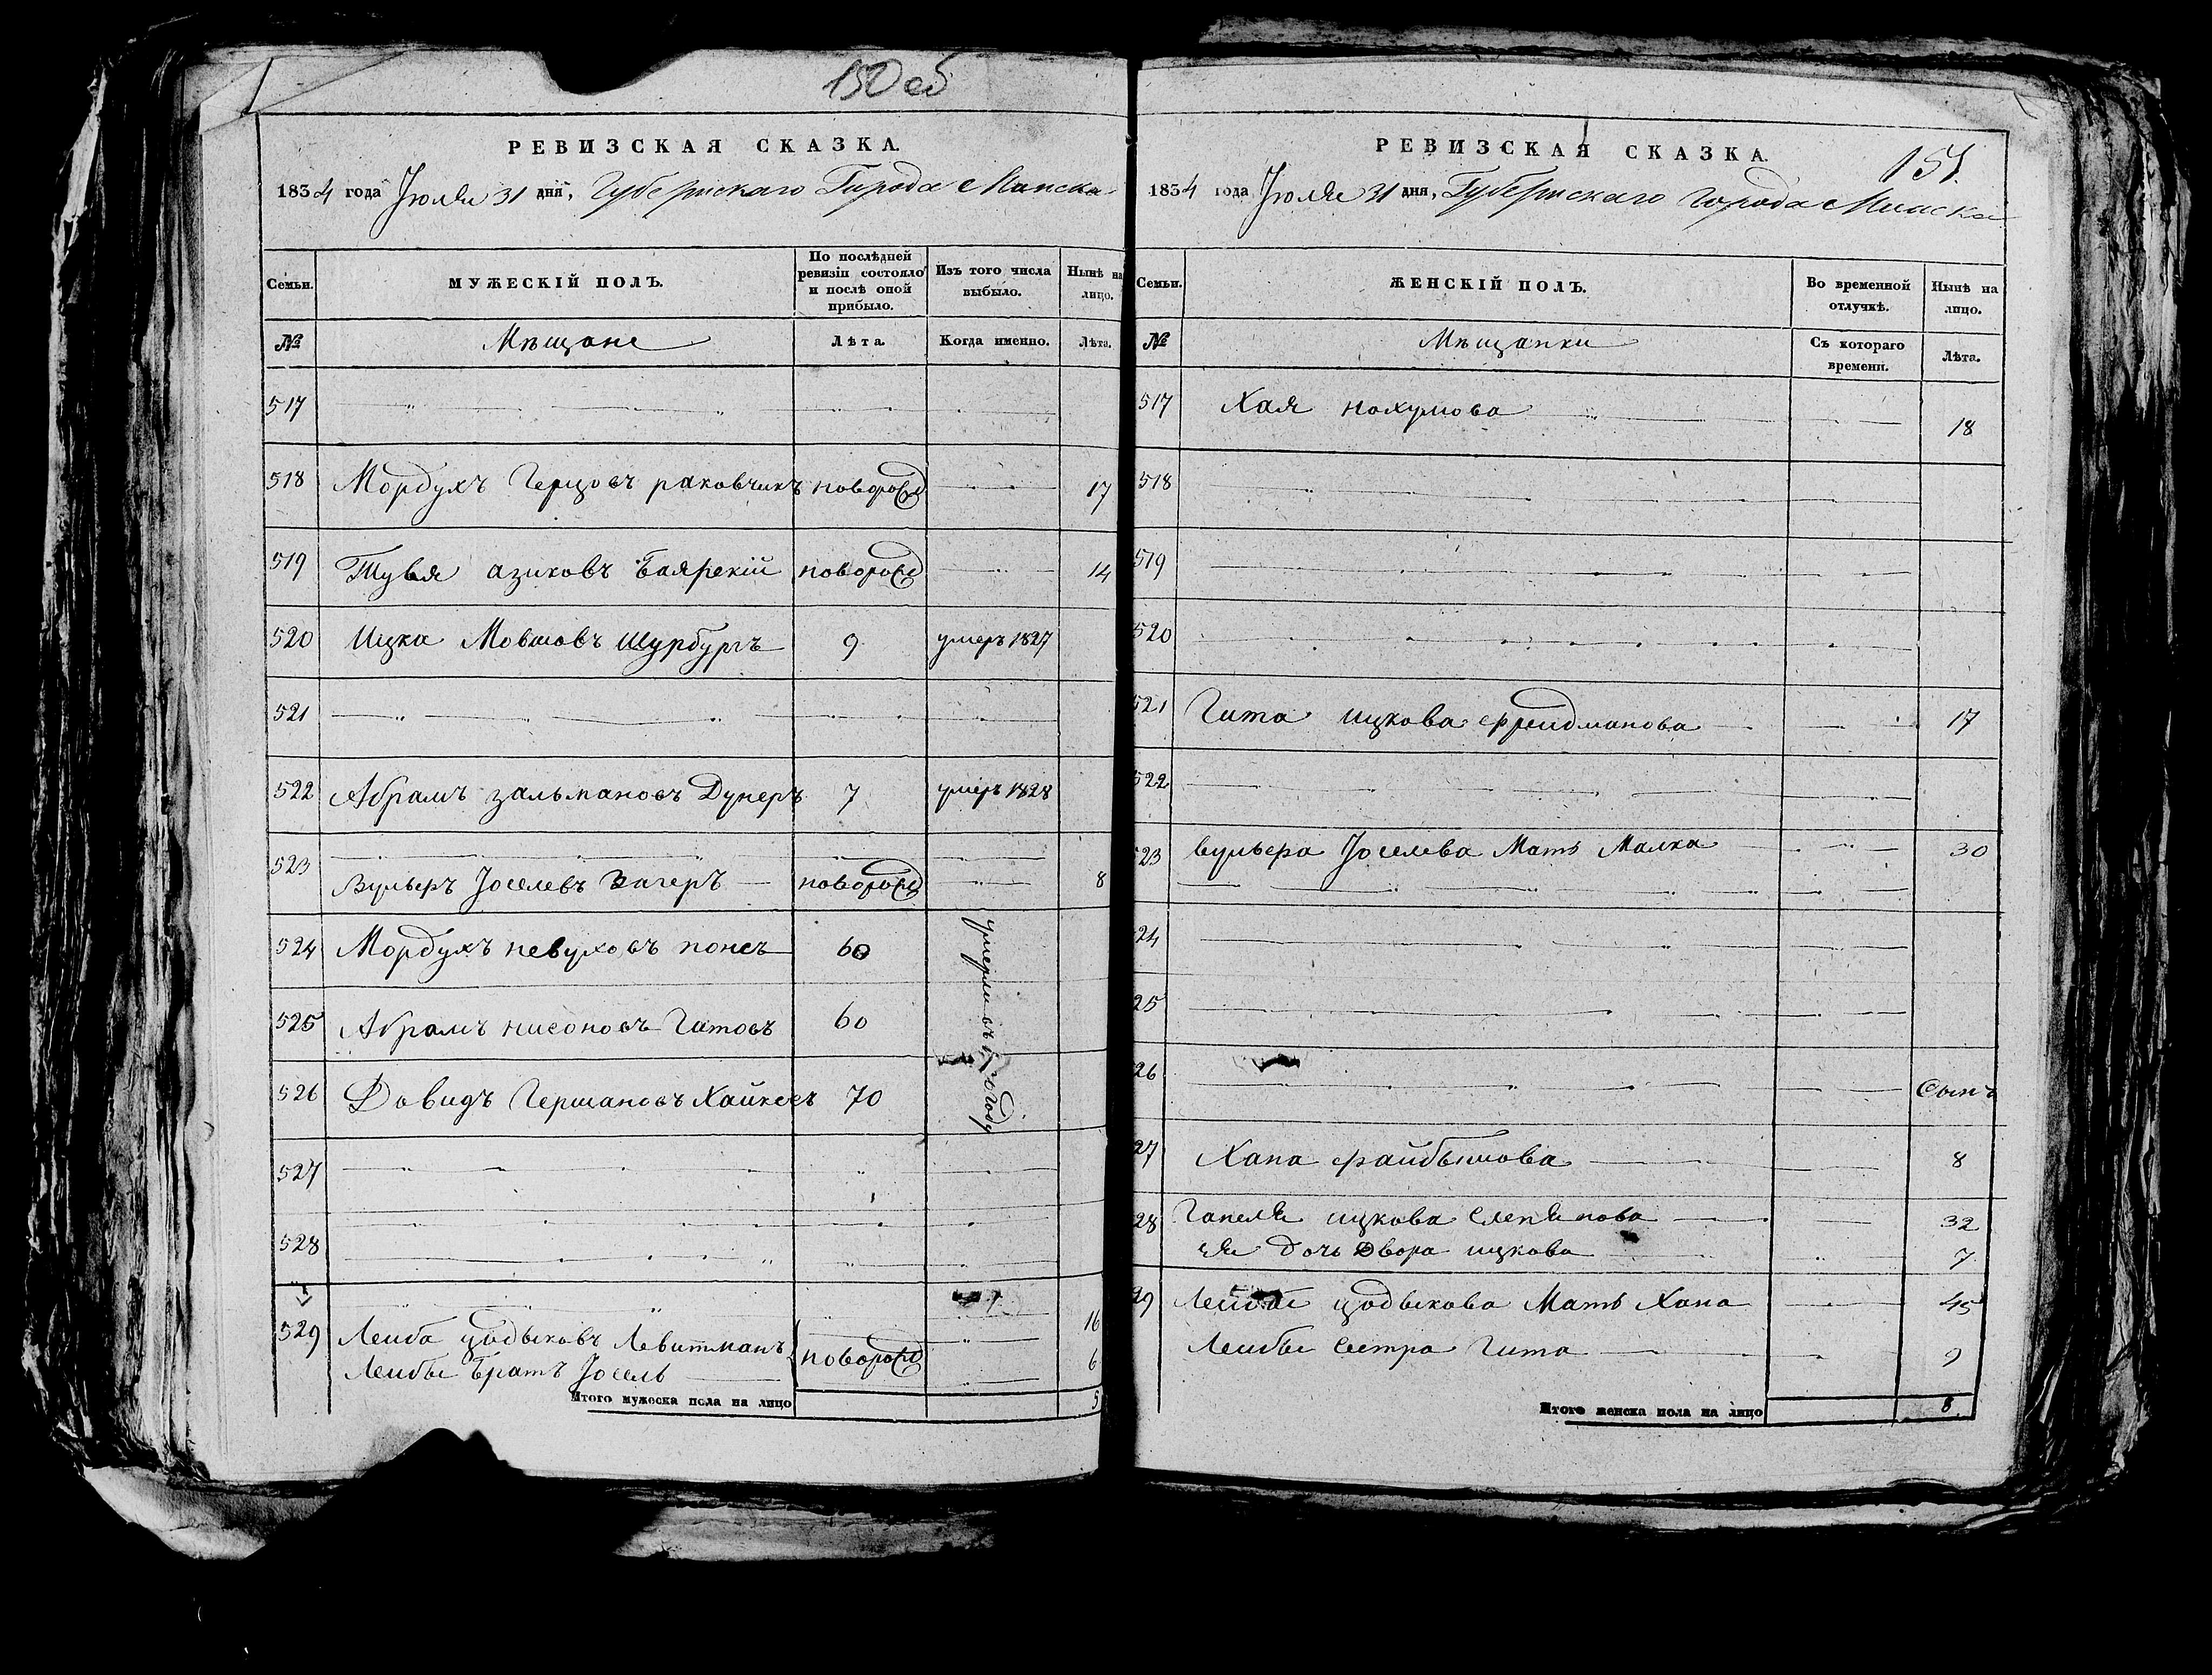 150 об
РЕВИЗСКАЯ СКАЗКА.
1834 года Іюля 31 дня, Губернскаго Города Минска
Семьи.
МУЖЕСКІЙ ПОЛЪ.
По послѣдней ревизіи состояло и послѣ оной прибыло.
Изъ того числа выбыло.
Нынѣ на лицо.
№
Мѣщане
Лѣта.
Когда именно.
Лѣта.
517
518 Мордухъ Герцовъ раковчикъ новорожд 17
519 Тувья азиковъ Баярскій новорожд 14
520 Ицка Мовшовъ Шурбургъ 9 умеръ 1827
521
522 Абрамъ зальмановъ Дунеръ 7 умеръ 1828
523
Вульеръ Іоселевъ Загеръ новорожд 8
524 Мордухъ невуховъ 60
умерли въ году
525 Абрамъ нисоновъ Гатовъ 60
526 Довидъ Гершановъ 70
527
528
529 16
Лейба цодыковъ Левитманъ
Лейбы Братъ Іосель новорожд 6
Итого мужеска пола на лицо 5
151.
РЕВИЗСКАЯ СКАЗКА.
1834 года Іюля 31 дня, Губернскаго Города Минска
Семьи.
ЖЕНСКІЙ ПОЛЪ.
Во временной отлучкѣ.
Нынѣ на лицо.
№
Мѣщанки
Съ котораго времени.
Лѣта.
517 Хая нохумова 18
518
519
520
521 Гита ицкова фрейдманова 17
522
23 вульера Іоселева Мать Малка 30
24
25
26
27 Хана файбышова 8
28 ицкова слепянова 32
ея дочь Двора ицкова 7
29 Лейбы цодыкова Мать Хана 45
Лейбы сестра Гита 9
Итого женска пола на лицо 8